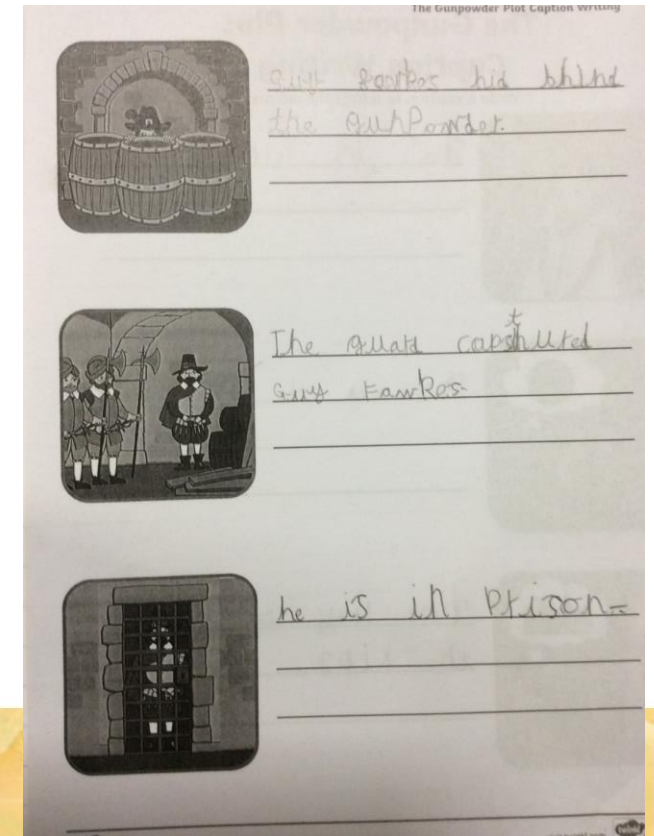 The Gunpowder Plot Caption Writing
Guy Fawkes hid bhind
the gunPowder.
The guard capshured
t
Guy Fawkes
he is in Prison